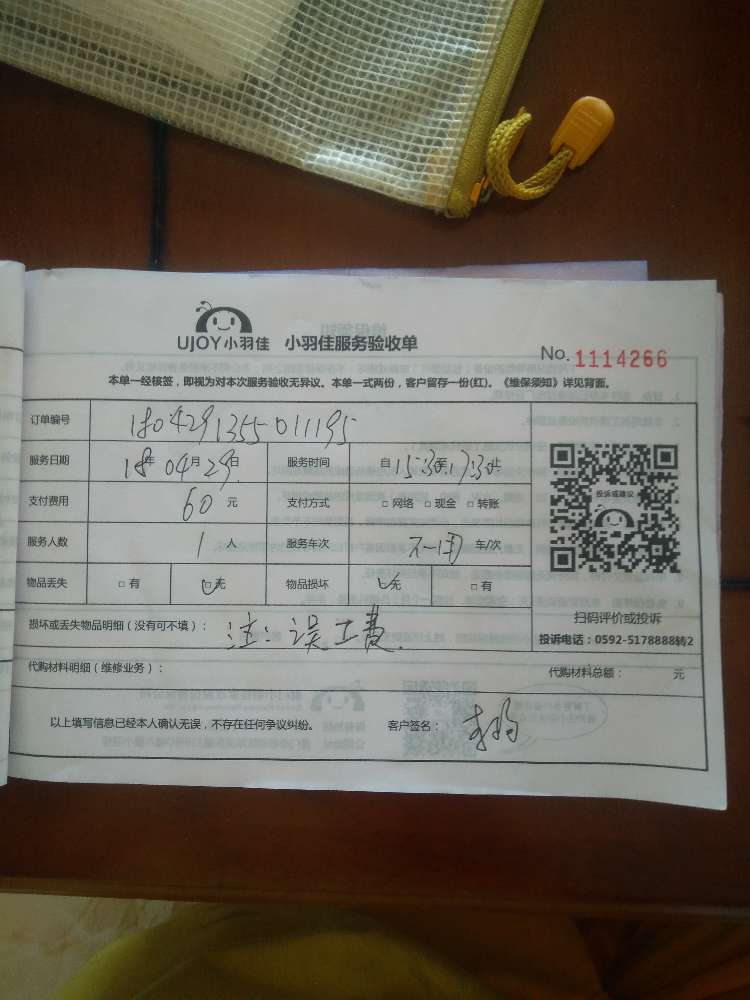 UJOY小羽佳 小羽佳服务验收单
No. 1114266
本单一经核签，即视为对本次服务验收无异议。本单一式两份，客户留存一份(红)。《维保须知》详见背面。
订单编号 180429135501195
服务日期 18年04月29日 服务时间 自15:30至17:30共
支付费用 60元 支付方式 □网络 □现金 □转账
投诉或建议
服务人数 1人 服务车次 车/次
物品丢失 □有 ☑无 物品损坏 ☑无 □有
扫码评价或投诉
损坏或丢失物品明细（没有可不填）：注：误工费.
投诉电话：0592-5178888转2
代购材料明细（维修业务）： 代购材料总额： 元
以上填写信息已经本人确认无误，不存在任何争议纠纷。 客户签名：